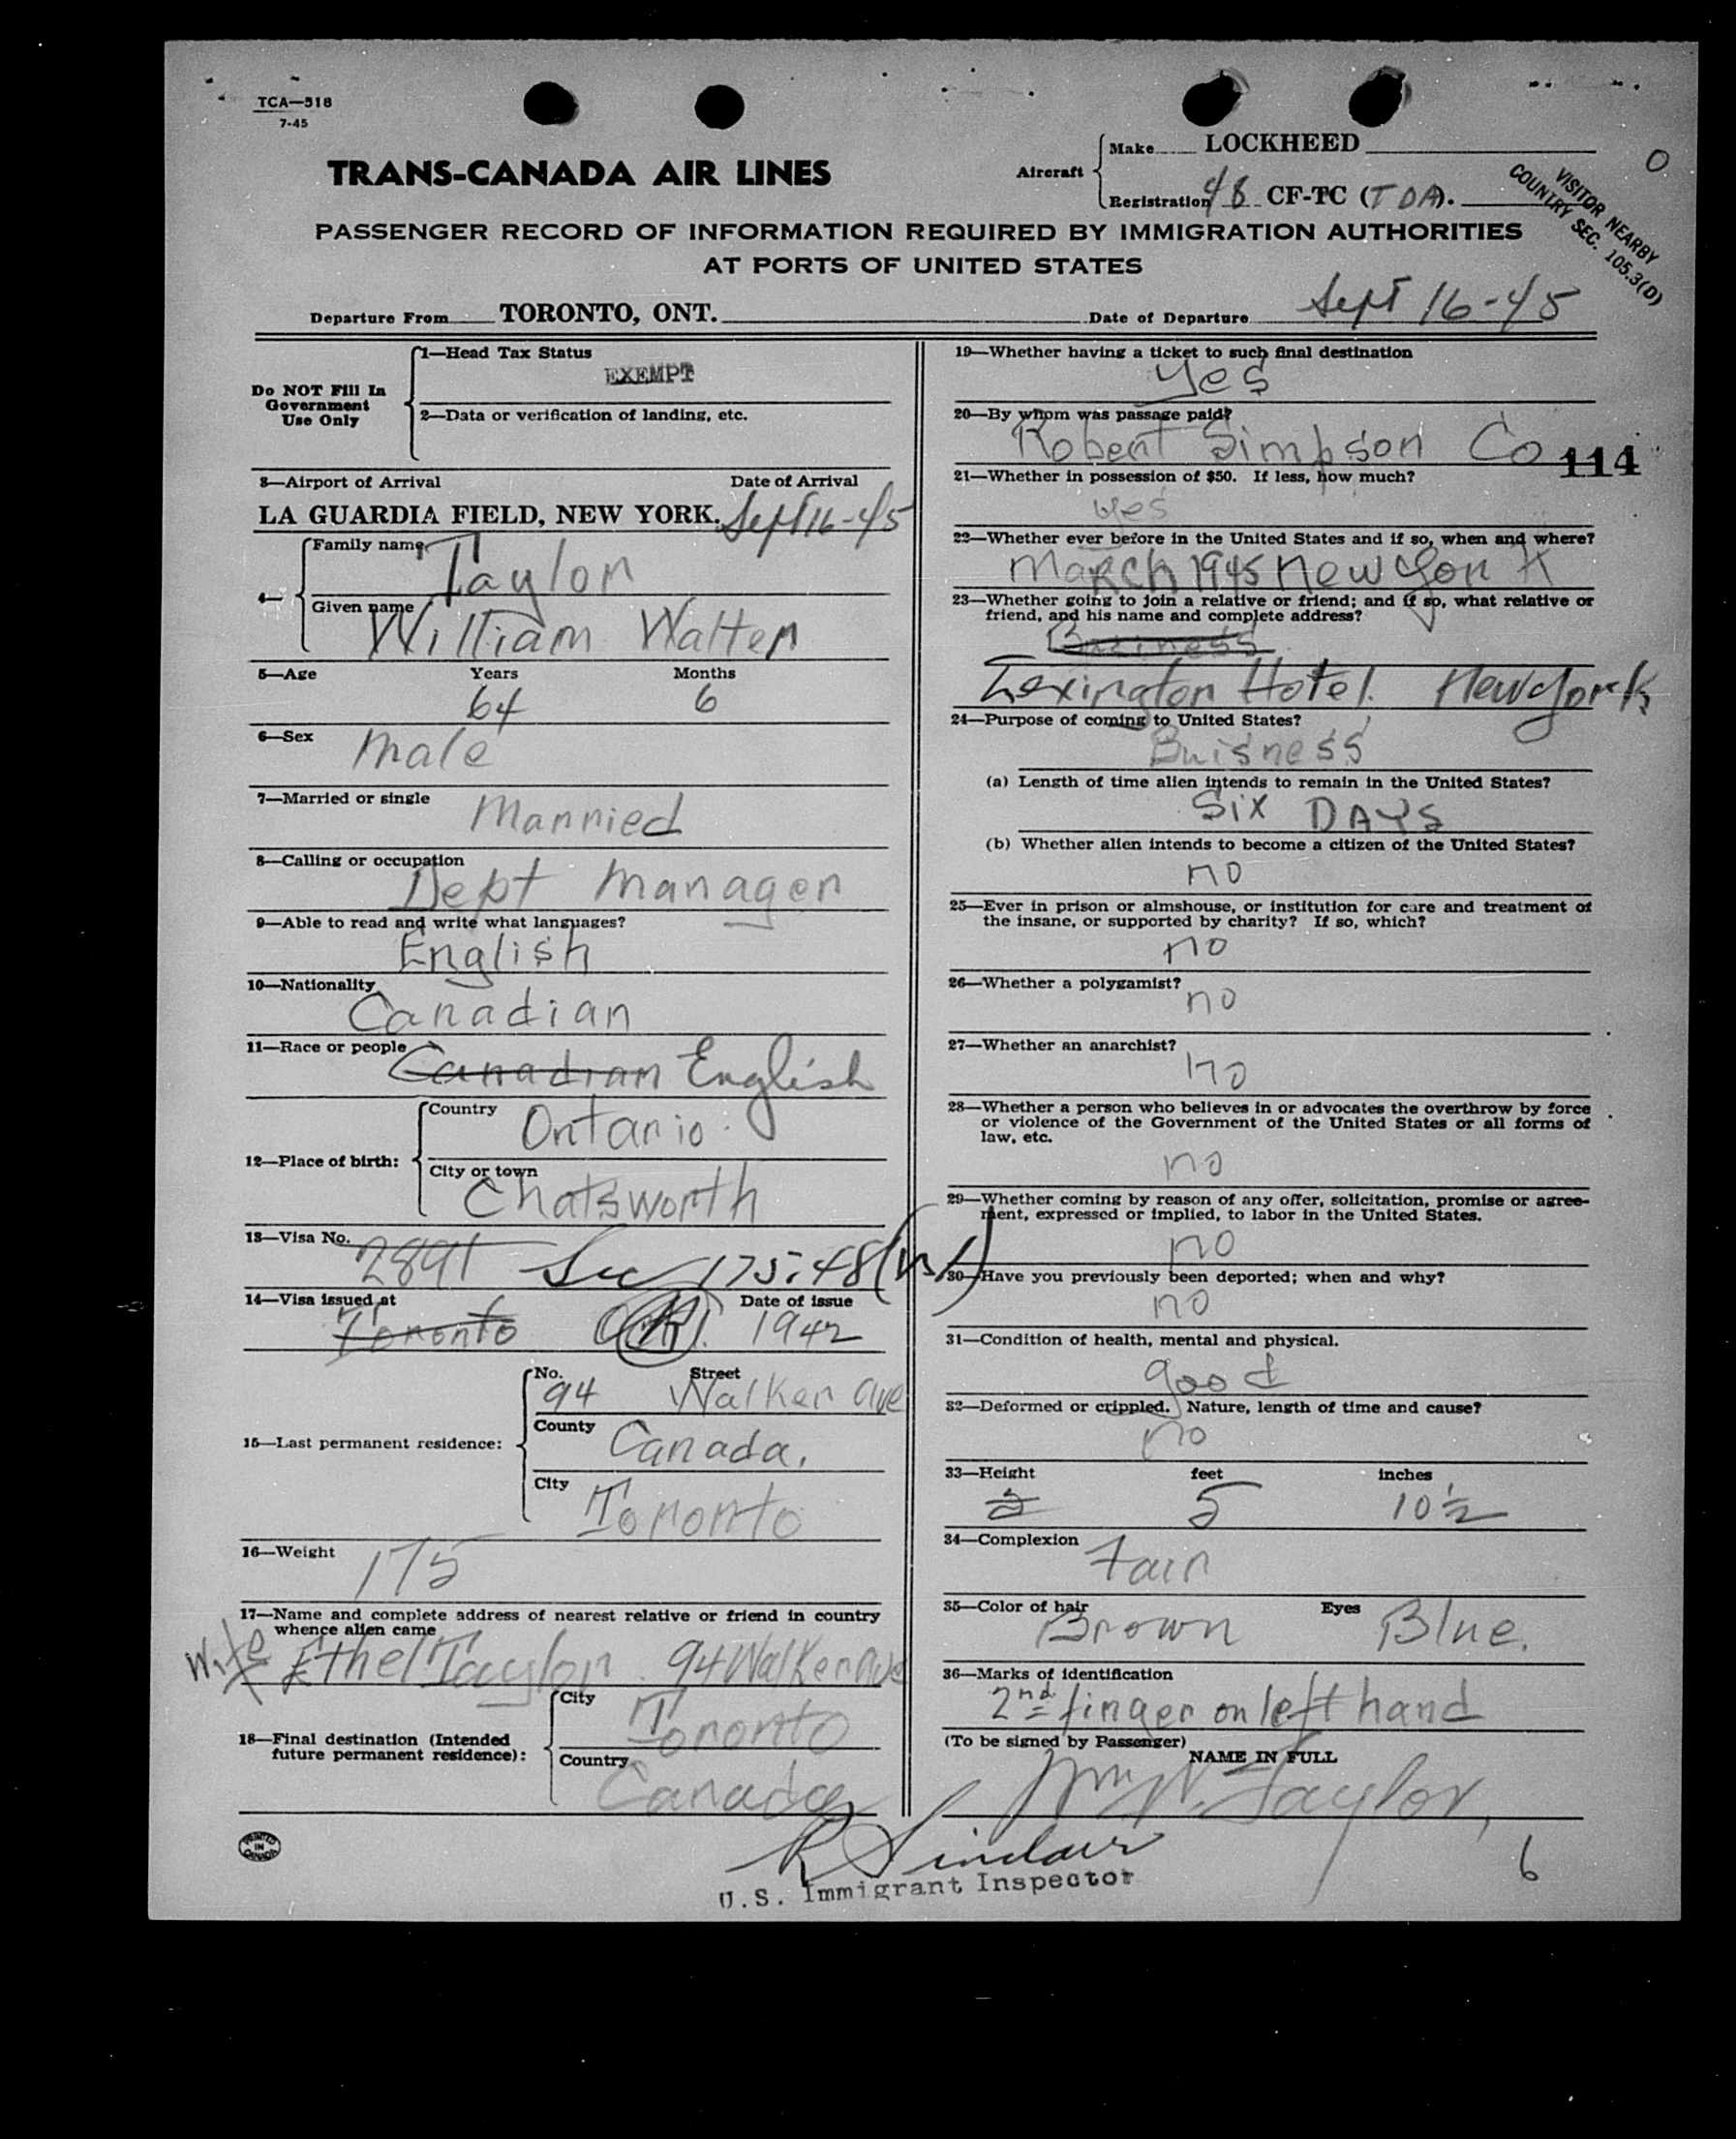 TCA—518
7-45
TRANS-CANADA AIR LINES
Aircraft
Make LOCKHEED
Registration 48 CF-TC (TDA).
0
VISITOR NEARBY
COUNTRY SEC. 105.3(D)
PASSENGER RECORD OF INFORMATION REQUIRED BY IMMIGRATION AUTHORITIES
AT PORTS OF UNITED STATES
Departure From TORONTO, ONT. Date of Departure Sept 16-45
Do NOT Fill In
Government
Use Only
1—Head Tax Status
EXEMPT
2—Data or verification of landing, etc.
3—Airport of Arrival Date of Arrival
LA GUARDIA FIELD, NEW YORK. Sept 16-45
4—
Family name
Taylor
Given name
William Walter
5—Age Years Months
64 6
6—Sex
male
7—Married or single
Married
8—Calling or occupation
Dept manager
9—Able to read and write what languages?
English
10—Nationality
Canadian
11—Race or people
Canadian English
12—Place of birth:
Country
Ontario
City or town
Chatsworth
13—Visa No.
2891 Sec 175.48
14—Visa issued at Date of issue
Toronto 1942
15—Last permanent residence:
No. Street
94 Walker ave
County
Canada.
City
Toronto
16—Weight
175
17—Name and complete address of nearest relative or friend in country
whence alien came
Wife Ethel Taylor. 94 Walker Ave
18—Final destination (Intended
future permanent residence):
City
Toronto
Country
Canada
19—Whether having a ticket to such final destination
yes
20—By whom was passage paid?
Robert Simpson Co
114
21—Whether in possession of $50. If less, how much?
yes
22—Whether ever before in the United States and if so, when and where?
March 1945 New York
23—Whether going to join a relative or friend; and if so, what relative or
friend, and his name and complete address?
Business
Lexington Hotel. New York
24—Purpose of coming to United States?
Buisness
(a) Length of time alien intends to remain in the United States?
Six DAYS
(b) Whether alien intends to become a citizen of the United States?
no
25—Ever in prison or almshouse, or institution for care and treatment of
the insane, or supported by charity? If so, which?
no
26—Whether a polygamist?
no
27—Whether an anarchist?
no
28—Whether a person who believes in or advocates the overthrow by force
or violence of the Government of the United States or all forms of
law, etc.
no
29—Whether coming by reason of any offer, solicitation, promise or agree-
ment, expressed or implied, to labor in the United States.
no
30—Have you previously been deported; when and why?
no
31—Condition of health, mental and physical.
good
32—Deformed or crippled. Nature, length of time and cause?
no
33—Height feet inches
5 10½
34—Complexion
Fair
35—Color of hair Eyes
Brown Blue.
36—Marks of identification
2nd finger on left hand
(To be signed by Passenger)
NAME IN FULL
Wm W. Taylor,
PRINTED
IN
CANADA
R Sinclair
U.S. Immigrant Inspector
6